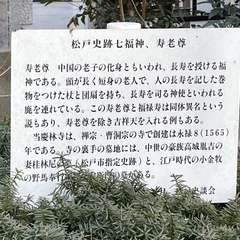 松戸史跡七福神、寿老尊
寿老尊 中国の老子の化身ともいわれ、長寿を授ける福
神である。頭が長く短身の老人で、人の長寿を記した巻
物をつけた杖と団扇を持ち、長寿を司る神使といわれる
鹿を連れている。この寿老尊と福禄寿は同体異名という
説もあり、寿老尊を除き吉祥天を入れる例もある。
当慶林寺は、禅宗・曹洞宗の寺で創建は永禄8(1565)
年である。寺の裏手の墓地には、中世の豪族高城胤吉の
妻桂林尼 (松戸市指定史跡)と、江戸時代の小金牧
の野馬奉行 墓がある。
史談会